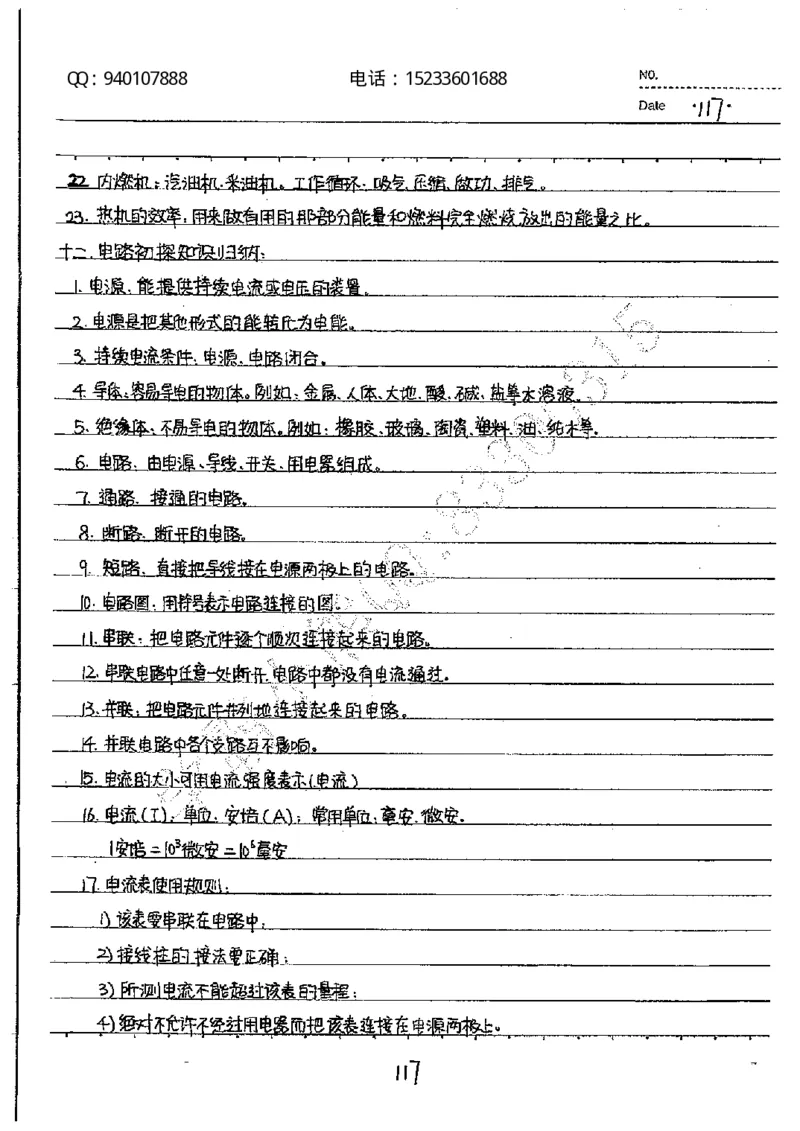 QQ：940107888
电话：15233601688
NO.
Date ·117·
22. 内燃机：汽油机.柴油机。工作循环：吸气、压缩、做功、排气。
23. 热机的效率：用来做有用的那部分能量和燃料完全燃烧放出的能量之比。
十二、电路初探知识归纳：
1. 电源、能提供持续电流或电压的装置。
2. 电源是把其他形式的能转化为电能。
3. 持续电流条件、电源、电路闭合。
4. 导体：容易导电的物体。例如：金属、人体、大地、酸、碱、盐等水溶液。
5. 绝缘体：不易导电的物体。例如：橡胶、玻璃、陶瓷、塑料、油、纯水等.
6. 电路、由电源、导线、开关、用电器组成。
7. 通路、接通的电路。
8. 断路、断开的电路。
9. 短路、直接把导线接在电源两极上的电路。
10. 电路图：用符号表示电路连接的图.
11. 串联：把电路元件逐个顺次连接起来的电路。
12. 串联电路中任意一处断开.电路中都没有电流通过.
13. 并联：把电路元件并列地连接起来的电路。
14. 并联电路中各个支路互不影响。
15. 电流的大小可用电流强度表示(电流)
16. 电流(I)：单位、安培(A)；常用单位：毫安.微安.
1安培=10³微安=10⁶毫安
17. 电流表使用规则：
1) 该表要串联在电路中；
2) 接线柱的接法要正确；
3) 所测电流不能超过该表的量程；
4) 绝对不允许不经过用电器而把该表连接在电源两极上。
117